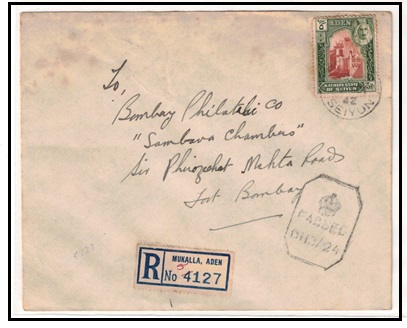 ADEN
KATHIRI STATE
OF SEIYUN
42
SEIYUN
To,
Bombay Philatelic Co
"Sambava Chambers"
Sir Phirozshah Mehta Road
Fort Bombay
PASSED
24
R
MUKALLA, ADEN
No 4127